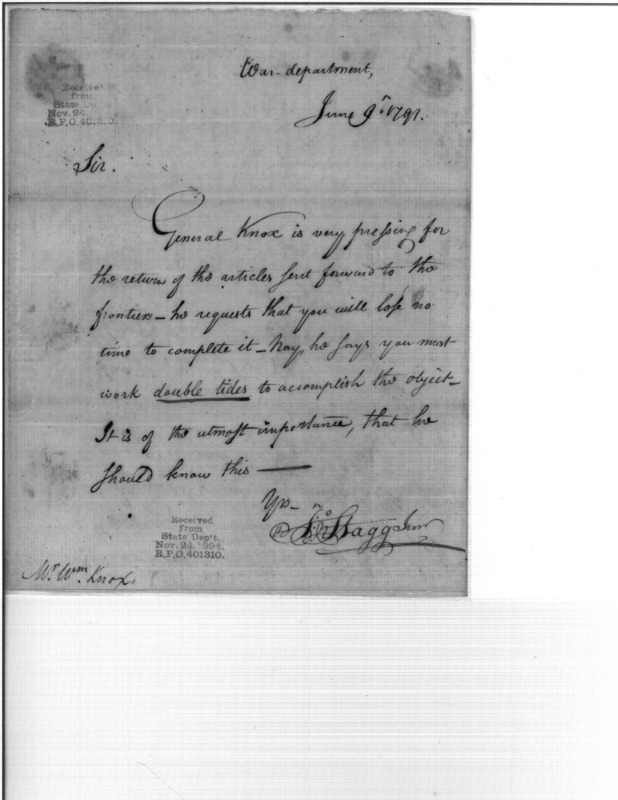 Received
from
State Dep't.
Nov. 24,
R.P.O. 401310.
War department,
June 9th 1791.
Sir.
General Knox is very pressing for
the return of the articles sent forward to the
frontiers – he requests that you will lose no
time to complete it – Nay, he says you must
work double tides to accomplish the object –
It is of the utmost importance, that he
should know this —
Yrs –
Jno Stagg Junr
Received
from
State Dep't.
Nov. 24, 1894.
R.P.O. 401310.
Mr. Wm. Knox.